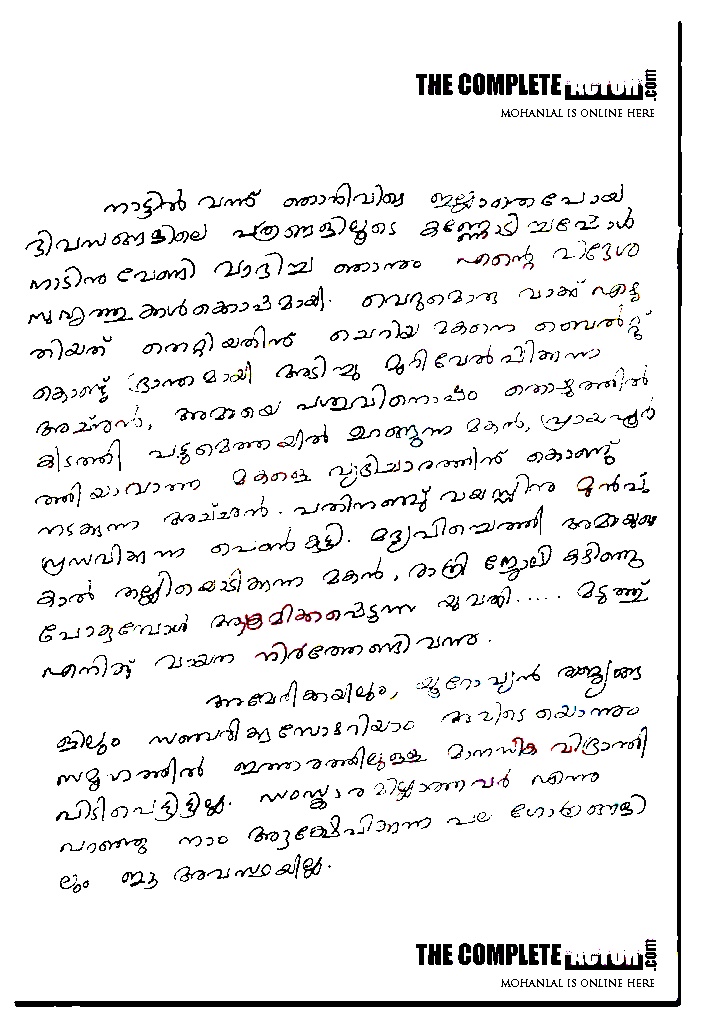 THE COMPLETE ACTOR .com
MOHANLAL IS ONLINE HERE
നാട്ടിൽ വന്ന് ഞാനിവിടെ ഇല്ലാതെപോയ
ദിവസങ്ങളിലെ പത്രങ്ങളിലൂടെ കണ്ണോടിച്ചപ്പോൾ
നാടിനുവേണ്ടി വാദിച്ച ഞാനും എന്റെ വിദേശ
സുഹൃത്തുക്കൾക്കൊപ്പമായി. വെറുമൊരു വാക്ക് എഴു
തിയത് തെറ്റിയതിന് ചെറിയ മകനെ ബെൽറ്റ്
കൊണ്ട് ഭ്രാന്തമായി അടിച്ചു മുറിവേൽപ്പിക്കുന്ന
അച്ഛൻ, അമ്മയെ പശുവിനൊപ്പം തൊഴുത്തിൽ
കിടത്തി പട്ടുമെത്തയിൽ ഉറങ്ങുന്ന മകൻ, പ്രായപൂർ
ത്തിയാവാത്ത മകളെ വ്യഭിചാരത്തിന് കൊണ്ടു
നടക്കുന്ന അച്ഛൻ. പതിനഞ്ചു വയസ്സിനു മുൻപു
പ്രസവിക്കുന്ന പെൺകുട്ടി. മദ്യപിച്ചെത്തി അമ്മയുടെ
കാൽ തല്ലിയൊടിക്കുന്ന മകൻ, രാത്രി ജോലി കഴിഞ്ഞു
പോകുമ്പോൾ ആക്രമിക്കപ്പെടുന്ന യുവതി..... മടുത്ത്
എനിക്ക് വായന നിർത്തേണ്ടിവന്നു.
അമേരിക്കയിലും, യൂറോപ്യൻ രാജ്യങ്ങ
ളിലും സഞ്ചരിക്കുമ്പോഴറിയാം അവിടെയൊന്നും
സമൂഹത്തിൽ ഇത്തരത്തിലുള്ള മാനസിക വിഭ്രാന്തി
പിടിപെട്ടിട്ടില്ല. സംസ്കാരമില്ലാത്തവർ എന്നു
പറഞ്ഞു നാം ആക്ഷേപിക്കുന്ന പല ഗോത്രങ്ങളി
ലും ഈ അവസ്ഥയില്ല.
THE COMPLETE ACTOR .com
MOHANLAL IS ONLINE HERE